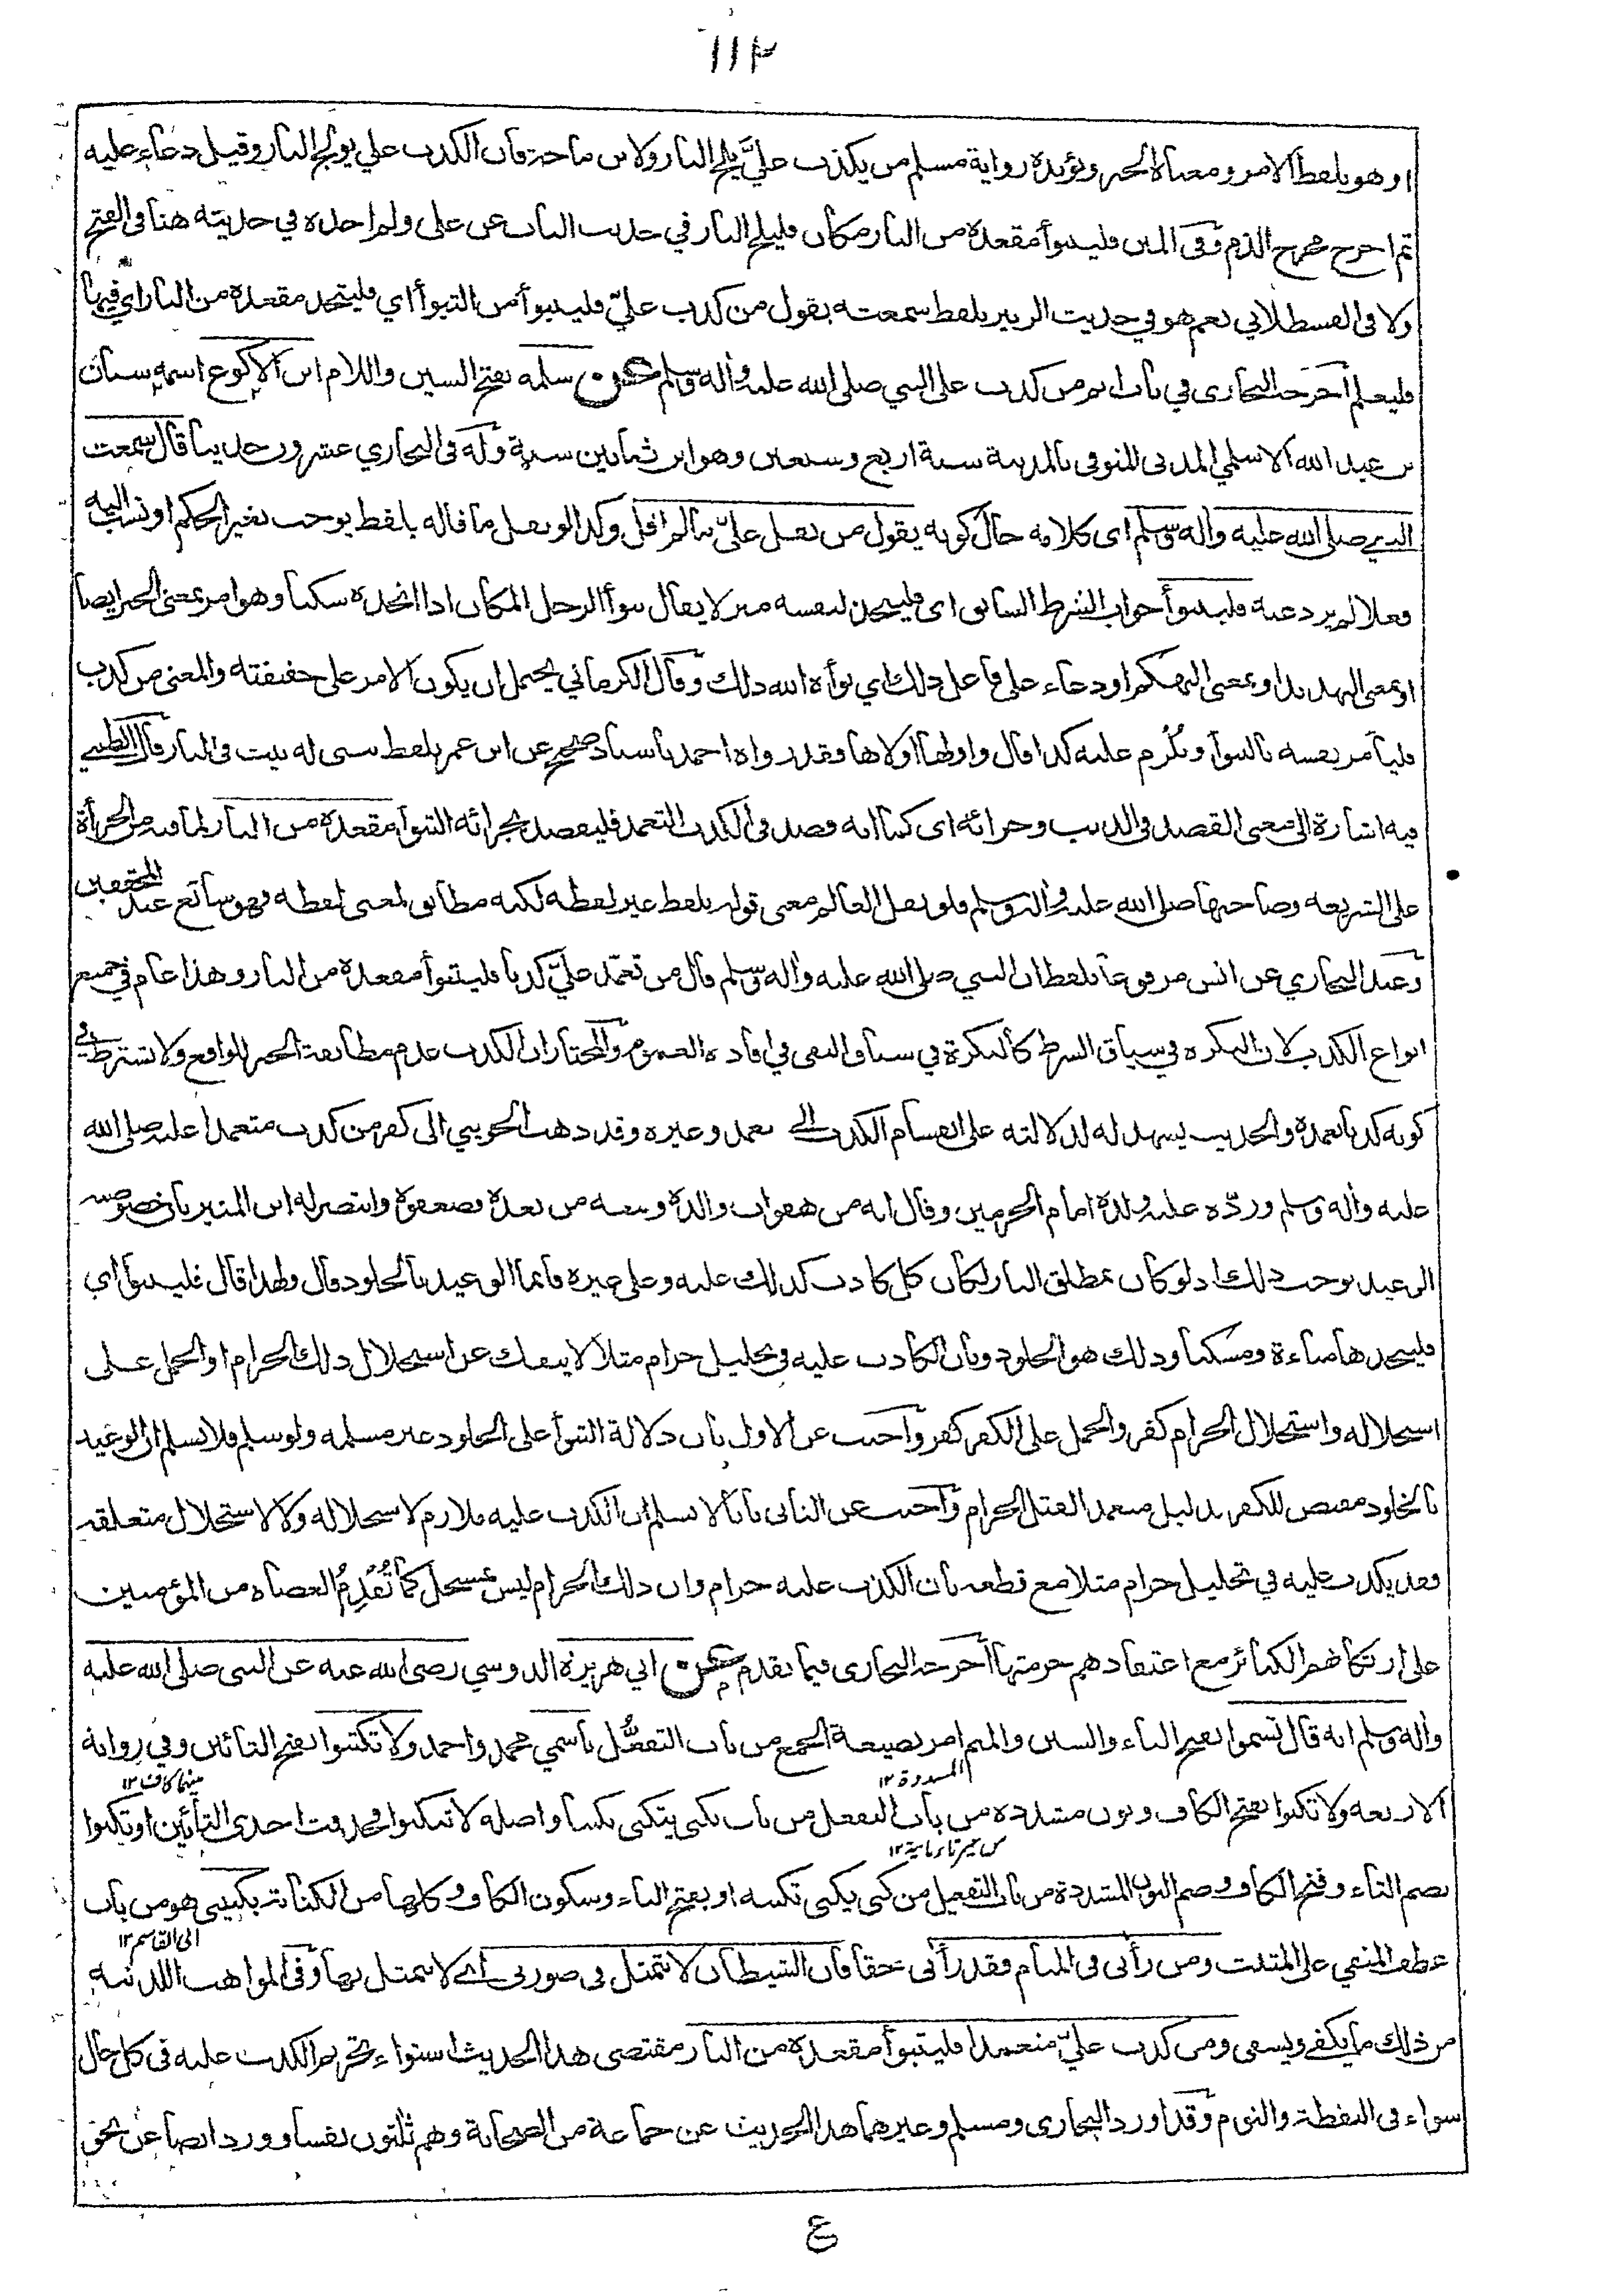 ١١٢
او هو بلفظ الامر ومعناه الخبر ويؤيده رواية مسلم من يكذب عليَّ يلج النار ولابن ماجة فان الكذب علي يولج النار وقيل دعاء عليه
ثم اخرج مخرج الذم وفى المتن فليتبوأ مقعده من النار مكان فليلج النار في حديث الباب عن على ولم اجده في حديثه هنا فى الفتح
ولا فى القسطلاني نعم هو في حديث الزبير بلفظ سمعته يقول من كذب عليّ فليتبوأ من التبوأ اي فليتخذ مقعده من النار اي فيها
فليعلم اخرجه البخارى في باب اثم من كذب على النبي صلى الله عليه واله وسلم عن سلمه بفتح السين واللام ابن الاكوع اسمه سنان
بن عبد الله الاسلمي المدنى المتوفى بالمدينة سنة اربع وسبعين وهو ابن ثمانين سنة وله فى البخاري عشرون حديثا قال سمعت
النبي صلى الله عليه واله وسلم اى كلامه حال كونه يقول من يقل عليّ ما لم اقل وكذا لو نقل ما قاله بلفظ يوجب تغير الحكم او نسب اليه
فعلا لم يرد عنه فليتبوأ جواب الشرط السابق اى فليتخذ لنفسه منزلا يقال تبوأ الرجل المكان اذا اتخذه سكنا وهو امر بمعنى الخبر ايضا
او بمعنى التهديد او بمعنى التهكم او دعاء على فاعل ذلك اي بوأه الله ذلك وقال الكرماني يحتمل ان يكون الامر على حقيقته والمعنى من كذب
فليأمر نفسه بالتبوأ ويُلزم عليه كذا قال واولها اولاها وقد رواه احمد باسناد صحيح عن ابن عمر بلفظ بنى له بيت فى النار قال الطيبي
فيه اشارة الى معنى القصد فى الذنب وجزائه اى كما انه قصد فى الكذب التعمد فليقصد بجزائه التبوأ مقعده من النار لما فيه من الجرأة
على الشريعه وصاحبها صلى الله عليه واله وسلم فلو نقل العالم معنى قوله بلفظ غير لفظه لكنه مطابق لمعنى لفظه فهو سائغ عند المحققين
وعند البخاري عن انس مرفوعا بلفظ ان النبي صلى الله عليه واله وسلم قال من تعمّد عليّ كذبا فليتبوأ مقعده من النار وهذا عام في جميع
انواع الكذب لان النكره في سياق الشرط كالنكرة في سياق النفى في افادة العموم والمختار ان الكذب عدم مطابقة الخبر للواقع ولا يشترط في
كونه كذبا تعمده والحديث يشهد له لدلالته على انقسام الكذب الى تعمد وغيره وقد ذهب الجويني الى كفر من كذب متعمدا عليه صلى الله
عليه واله وسلم وردّه عليه ولده امام الحرمين وقال انه من هفوات والده وتبعه من بعده فضعفوه وانتصر له ابن المنير بان خصوصية
الوعيد توجب ذلك اذ لو كان بمطلق النار لكان كل كاذب كذلك عليه وعلى غيره فانما الوعيد بالخلود قال ولهذا قال فليتبوأ اي
فليتخذها مباءة ومسكنا وذلك هو الخلود وبان الكاذب عليه في تحليل حرام مثلا لا ينفك عن استحلال ذلك الحرام او الحمل على
استحلاله واستحلال الحرام كفر والحمل على الكفر كفر واجيب عن الاول بان دلالة التبوأ على الخلود غير مسلمه ولو سلم فلا نسلم ان الوعيد
بالخلود مقتض للكفر بدليل متعمد القتل الحرام واجيب عن الثانى بانا لا نسلم ان الكذب عليه ملازم لاستحلاله ولا لاستحلال متعلقه
فقد يكذب عليه في تحليل حرام مثلا مع قطعه بان الكذب عليه حرام وان ذلك الحرام ليس بمستحل كما تُقْدِمُ العصاه من المؤمنين
على ارتكابهم الكبائر مع اعتقادهم حرمتها اخرجه البخارى فيما تقدم عن ابي هريرة الدوسي رضى الله عنه عن النبى صلى الله عليه
واله وسلم انه قال تسموا بفتح التاء والسين والميم امر بصيغة الجمع من باب التفعُّل باسمي محمد واحمد ولا تكتنوا بفتح التائين وفي رواية
المشددة ١٢
بينهما كاف ١٢
الاربعه ولا تكنوا بفتح الكاف ونون مشدده من باب التفعل من باب تكنى يتكنى تكنيا واصله لا تتكنوا فحذفت احدى التائين او تكنوا
بضم التاء وفتح الكاف وضم النون المشددة من باب التفعيل من كنى يكنى تكنية او بفتح التاء وسكون الكاف وكلها من الكناية بكنيتى هو من باب
ابى القاسم ١٢
عطف المنفي على المثبت ومن رأنى فى المنام فقد رأنى حقا فان الشيطان لا يتمثل فى صورتى اى لا يتمثل بها وفى المواهب اللدنيه
من ذلك ما يكفي ويشفى ومن كذب عليّ متعمدا فليتبوأ مقعده من النار مقتضى هذا الحديث استواء تحريم الكذب عليه فى كل حال
سواء فى اليقظة والنوم وقد اورد البخارى ومسلم وغيرهما هذا الحديث عن جماعة من الصحابة وهم ثلثون نفسا وورد ايضا عن نحو
ع